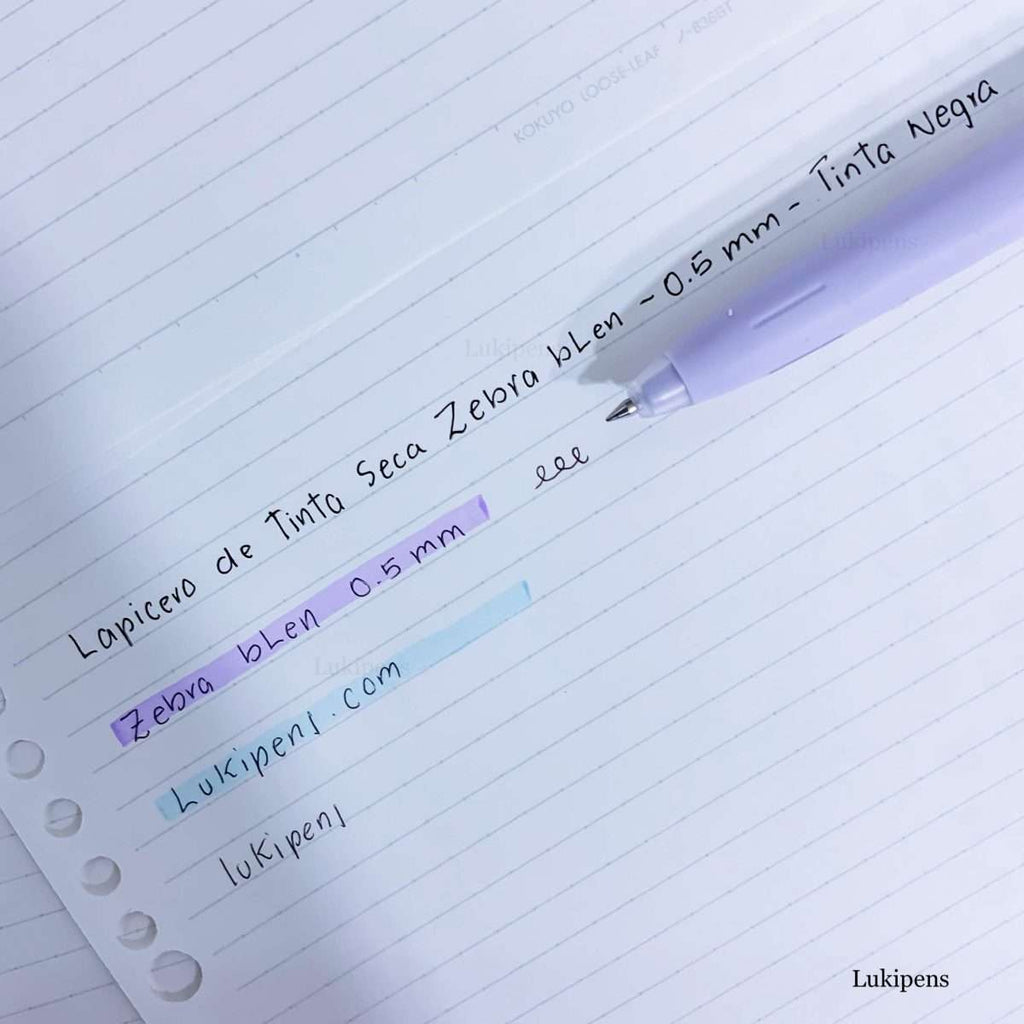 KOKUYO LOOSE-LEAF ノ-836BT
Lapicero de Tinta Seca Zebra bLen ~ 0.5 mm - Tinta Negra
eee
Zebra bLen 0.5 mm
Lukipens.com
lukipens
Lukipens
Lukipens
Lukipens
Lukipens